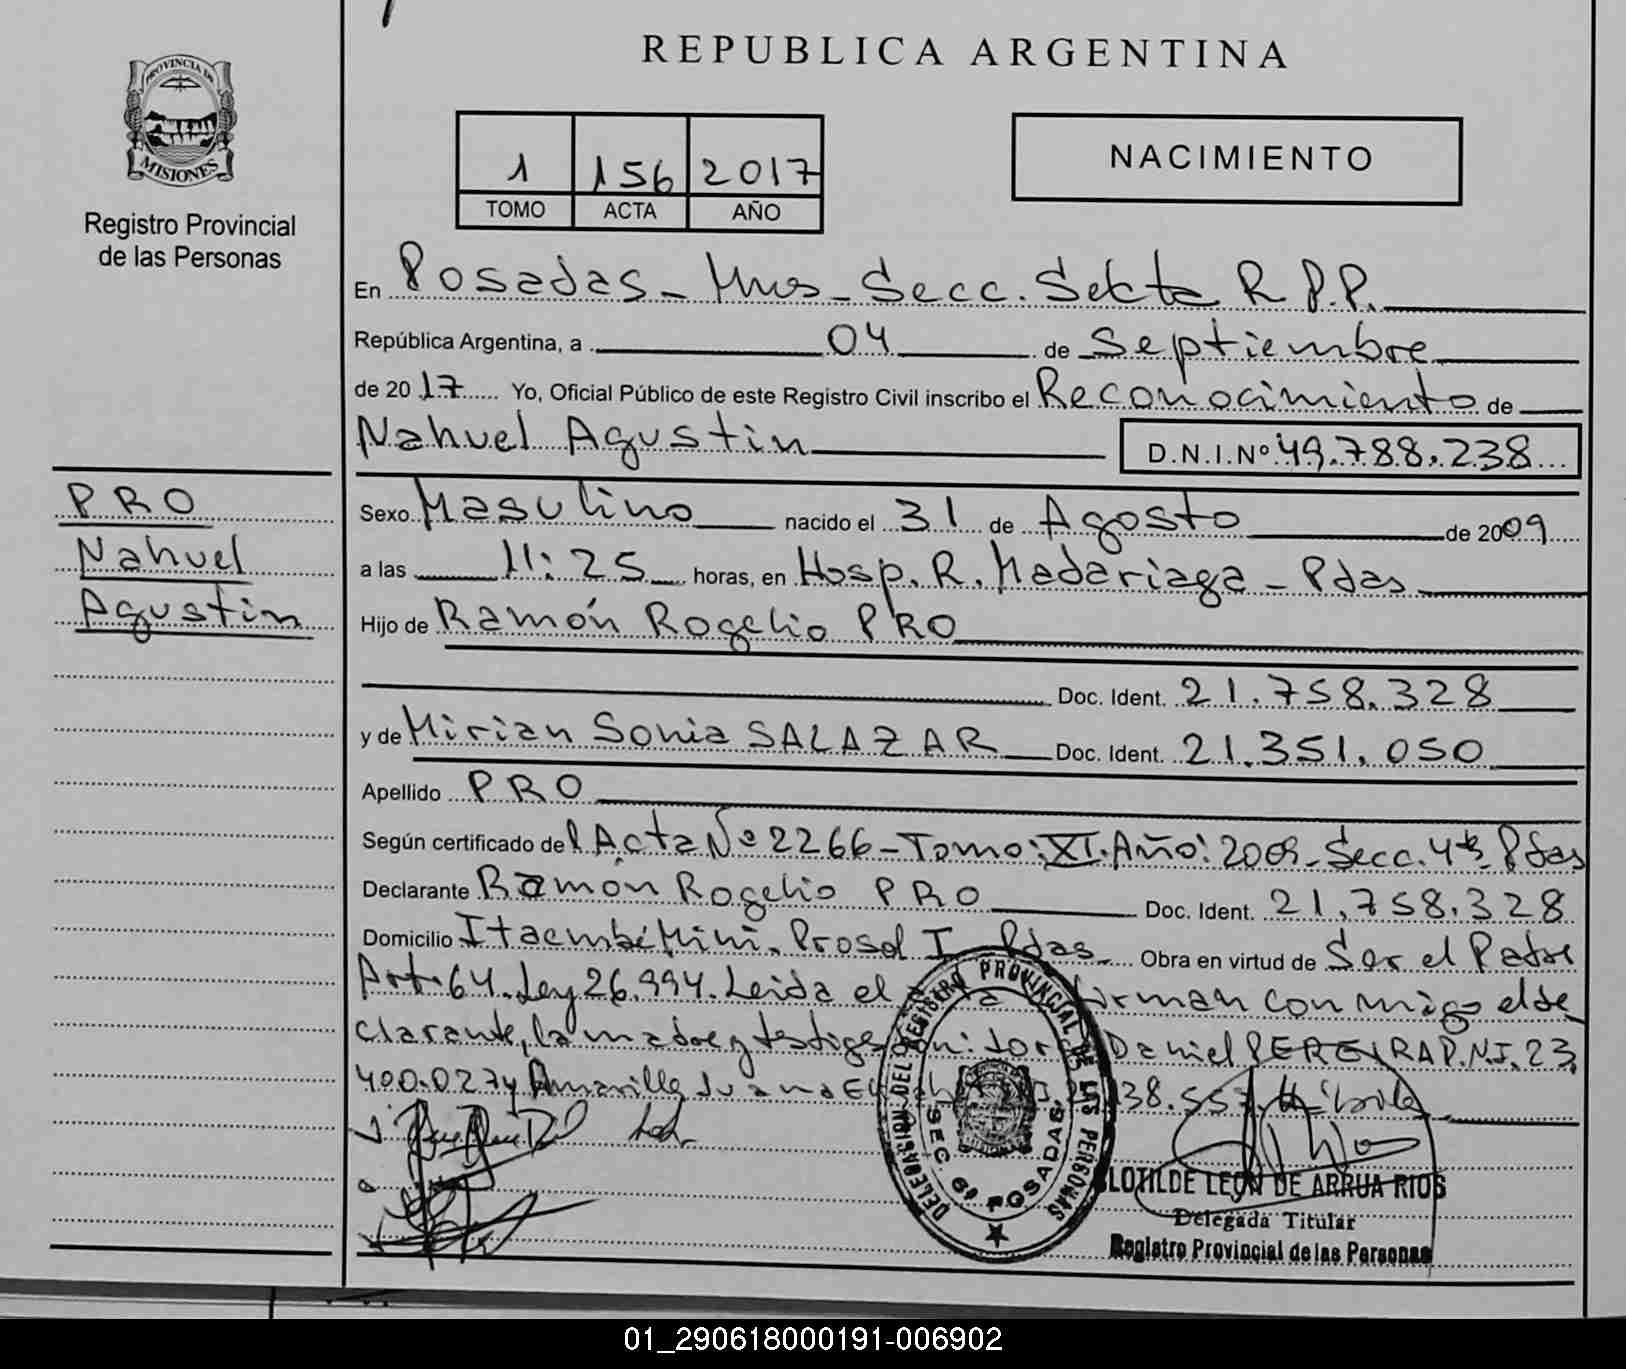 PROVINCIA DE
MISIONES
Registro Provincial
de las Personas
PRO
Nahuel
Agustin
REPUBLICA ARGENTINA
1 156 2017
TOMO ACTA AÑO
NACIMIENTO
En Posadas - Mnes - Secc. Sekta R.P.P.
República Argentina, a 04 de Septiembre
de 2017 Yo, Oficial Público de este Registro Civil inscribo el Reconocimiento de
Nahuel Agustin D.N.I.Nº 49.788.238
Sexo Masulino nacido el 31 de Agosto de 2009
a las 11:25 horas, en Hosp. R. Madariaga - Pdas
Hijo de Ramón Rogelio PRO
Doc. Ident. 21.758.328
y de Mirian Sonia SALAZAR Doc. Ident. 21.351.050
Apellido PRO
Según certificado del Acta Nº 2266 - Tomo: XI. Año: 2009 - Secc. 4ta Pdas
Declarante Ramón Rogelio PRO Doc. Ident. 21.758.328
Domicilio Itaembé Mini, Prosol I Pdas Obra en virtud de Ser el Padre
Art. 64. Ley 26.994. Leida el firman con migo el de
clarante, la madre y testigos Daniel PEREYRA D.N.I. 23.
400.027 y Amarilla Juana 138.557.
DELEGACION DEL REGISTRO PROVINCIAL DE LAS PERSONAS
SEC. 6ª POSADAS
CLOTILDE LEON DE ARRUA RIOS
Delegada Titular
Registro Provincial de las Personas
01_290618000191-006902